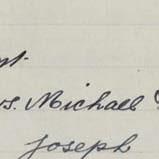 s. Michael
Joseph